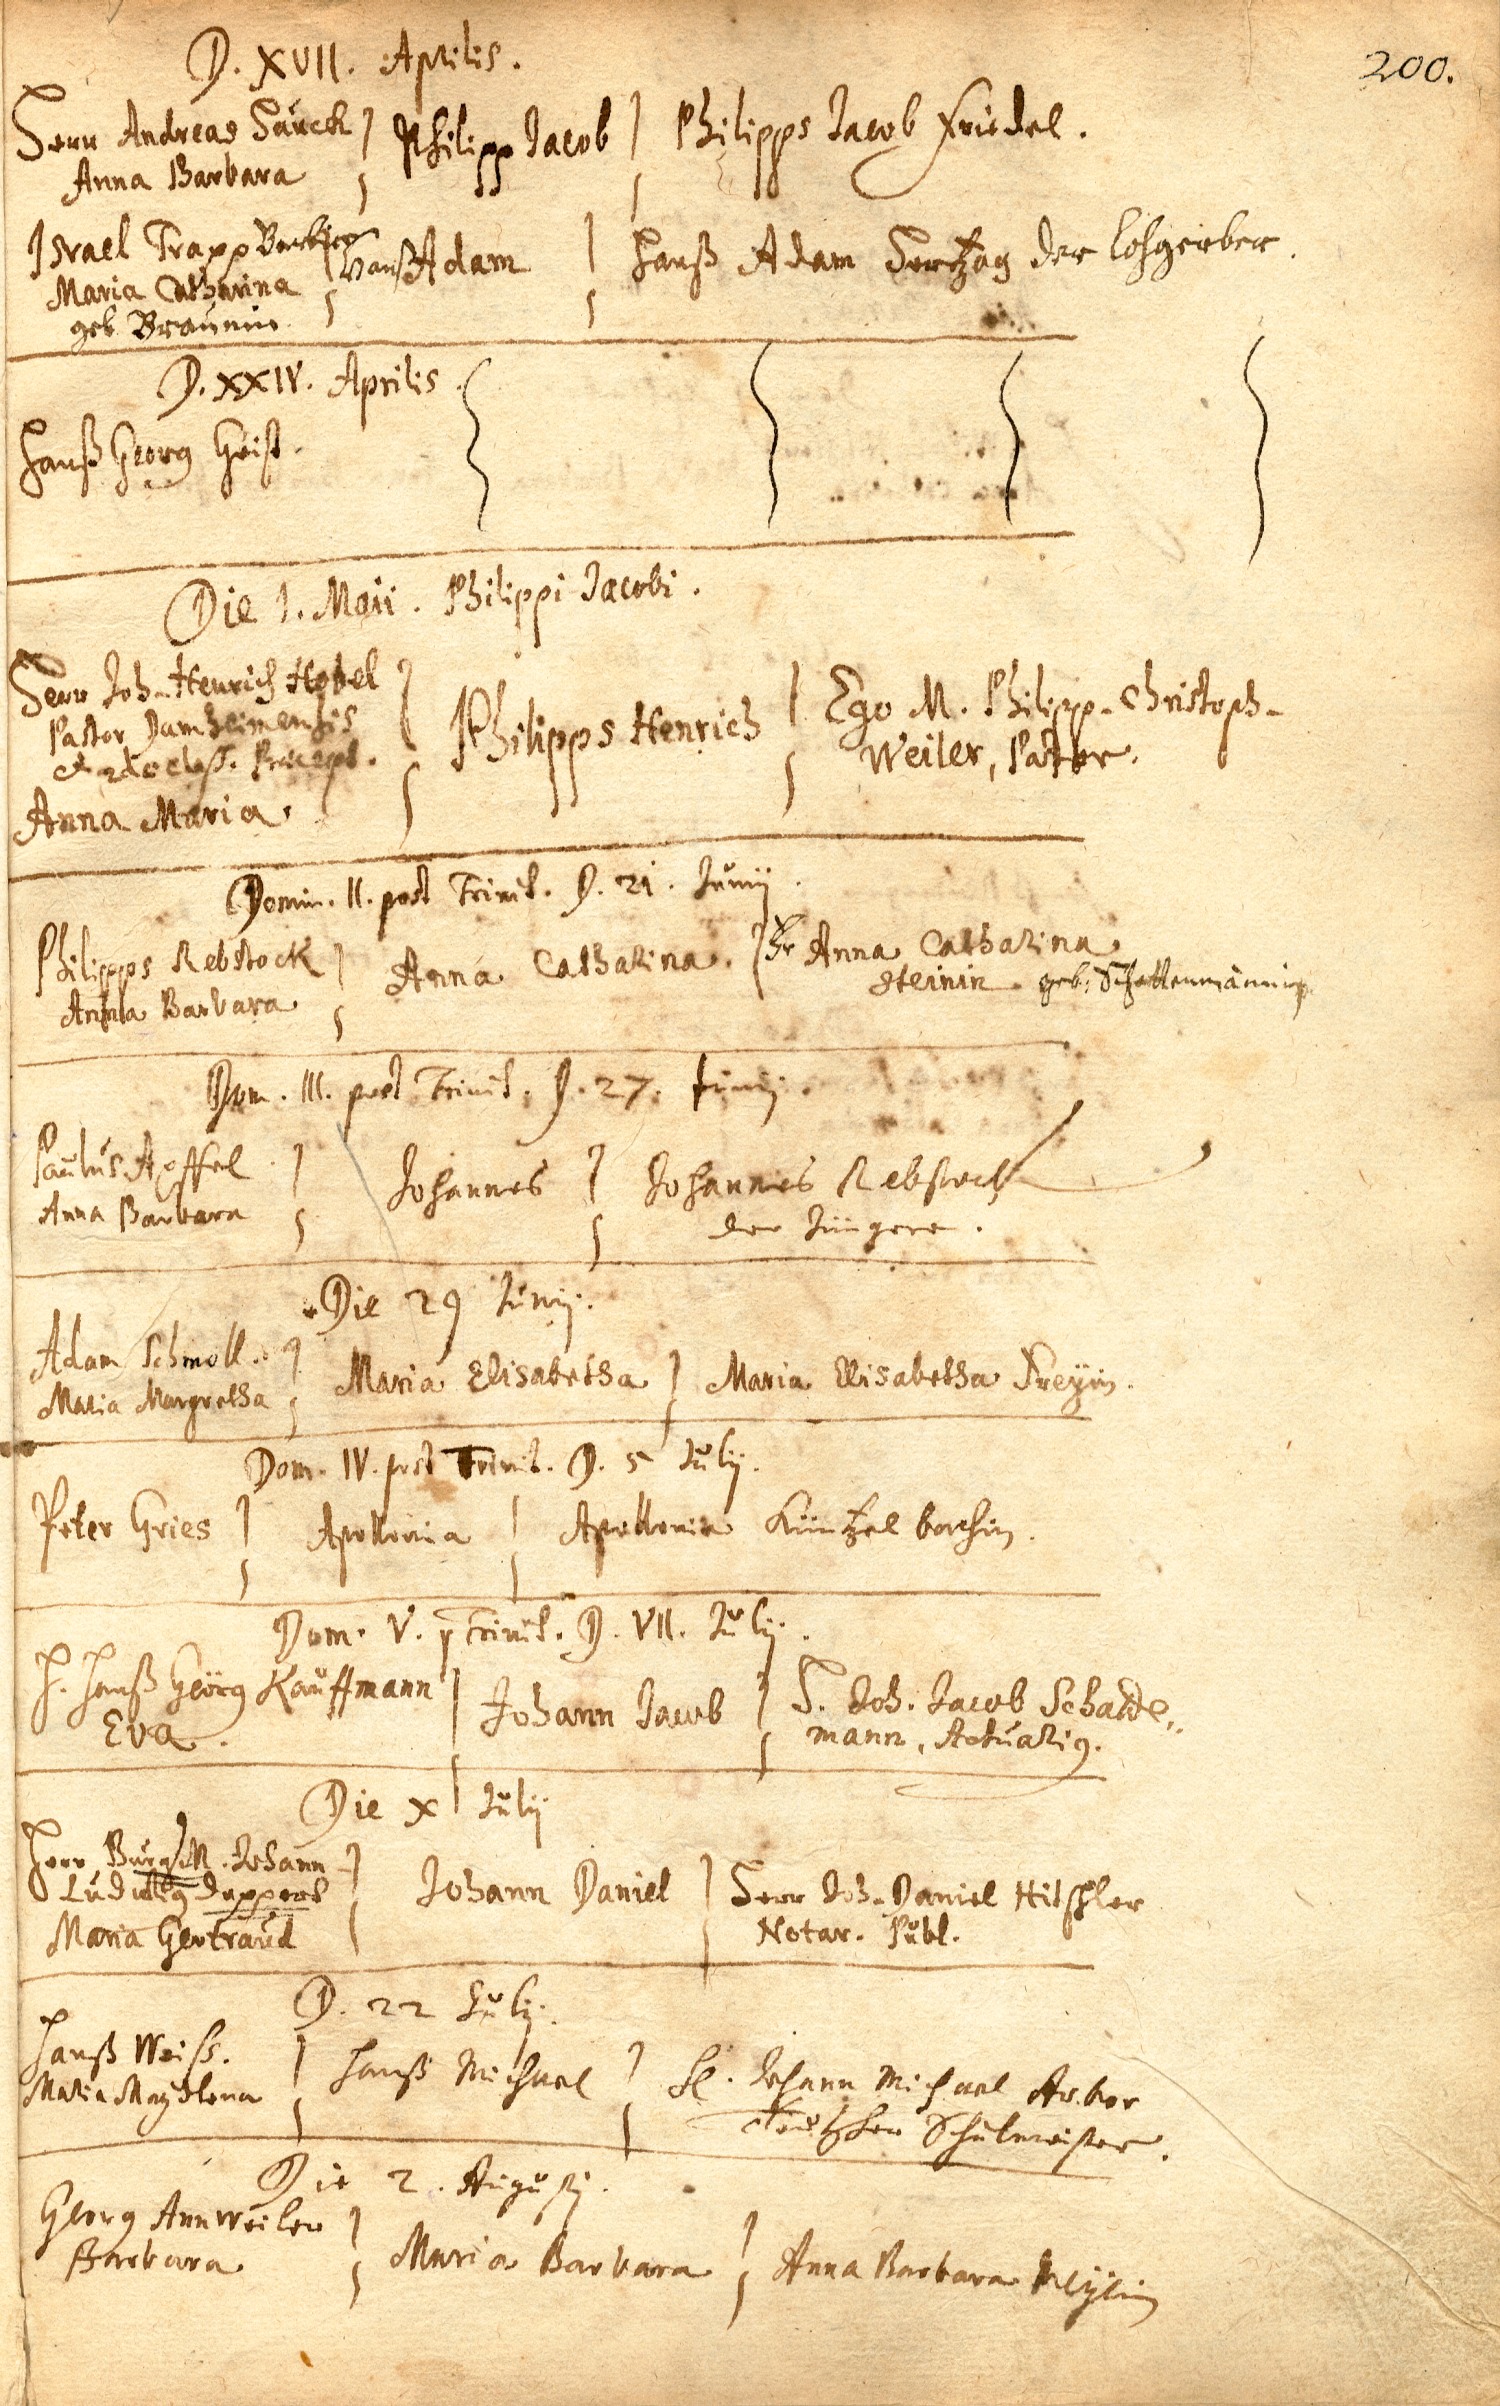 200.
D. XVII. Aprilis.
Herr Andreas Hauck } Philipp Jacob } Philipps Jacob Friedel.
Anna Barbara
Israel Trapp } Hanß Adam } Hanß Adam Hertzog der Lohgerber.
Maria Catharina
geb. Braunin
D. XXIV. Aprilis.
Hanß Georg Geist.
Die 1. Maii. Philippi Jacobi.
Herr Joh. Henrich Hebel } Philipps Henrich } Ego M. Philipp-Christoph-
Pastor Damheimensis Weiler, Pastor.
Anna Maria.
Domin. II. post Trinit. D. 21. Junij.
Philipps Rebstock } Anna Catharina. } Fr Anna Catharina
Anna Barbara Steinin. geb. Schattenmännin
Dom. III. post Trinit. D. 27. Junij.
Paulus Apffel } Johannes } Johannes Rebstock
Anna Barbara der Jüngere.
Die 29 Junij.
Adam Schmoll. } Maria Elisabetha } Maria Elisabetha Freyin.
Maria Margretha
Dom. IV. post Trinit. D. 5 Julij.
Peter Gries } Apollonia } Apollonia Küntzelbachin.
Dom. V. p Trinit. D. VII. Julij.
H. Hanß Geörg Kauffmann } Johann Jacob } H. Joh. Jacob Schatte„
Eva. mann, Actuarig.
Die X Julij
Herr Burg.M. Johann } Johann Daniel } Herr Joh. Daniel Hitschler
Ludwig Duppert Notar. Publ.
Maria Gertraud
D. 22 Julij.
Hanß Weiss. } Hanß Michael } H. Johann Michael Arbor
Maria Magdlena Teutscher Schulmeister.
Die 2. Augusti.
Georg Annweiler } Maria Barbara } Anna Barbara
Barbara